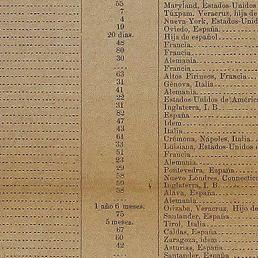 55 Maryland, Estados-Unidos
7 Túxpam, Veracruz, hija de
4 Nueva-York, Estados-Unidos
19 Oviedo, España
20 dias. Hija de español
48 Francia
80 Francia
30 Alemania
Francia
63 Altos Pirineos, Francia
31 Génova, Italia
41 Alemania
22 Estados Unidos de América
31 Inglaterra, I. B.
82 España
47 Idem
43 Italia
61 Cremona, Nápoles, Italia
33 Luisiana, Estados-Unidos
51 Francia
23 Alemania
29 Pontevedra, España
58 Nuevo Londres, Connecticut
59 Inglaterra, I. B.
58 Alava, España
Alemania
1 año 6 meses. Orizaba, Veracruz, Hija de
75 Santander, España
5 meses. Tirol, Italia
67 Caldas, España
60 Zaragoza, idem
42 Asturias, España
Santander, España